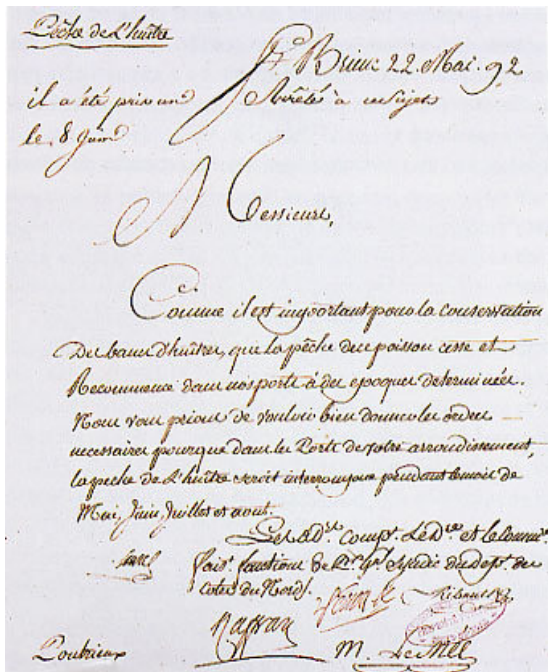 Pêche de l'huître
St Brieuc 22 Mai. 92
il a été pris un Arrêté à ce sujet
le 8 Juin
Messieurs,
Comme il est important pour la conservation
Des bancs d'huîtres, que la pêche de ce poisson cesse et
Recommence dans nos ports à des epoques determinées.
Nous vous prions de vouloir bien donner les ordres
necessaires pour que dans les Ports de votre arrondissement,
la peche de L'huitre soit interrompue pendant les mois de
Mai, Juin Juillet et aout.
Les ad. comp. Le D. et le
fais. fonctions de Pr. Gn. Syndic du Dept. des
Cotes du Nord.